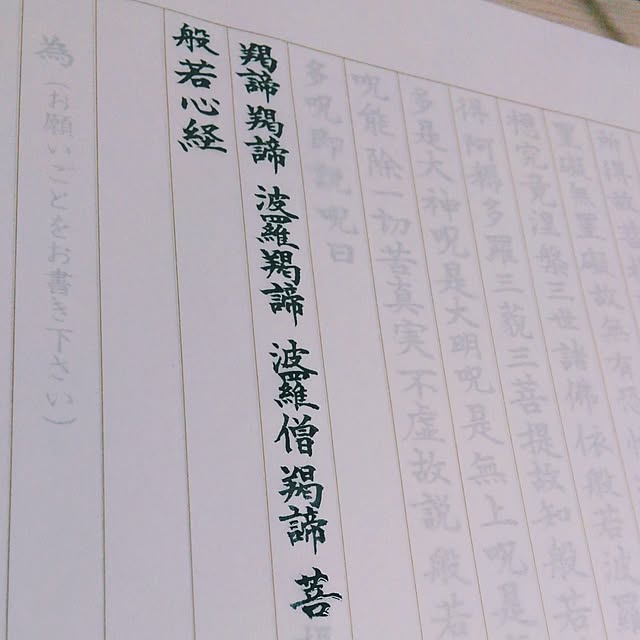 所得故菩提
罣礙無罣礙故無有恐怖
想究竟涅槃三世諸佛依般若波羅
得阿耨多羅三藐三菩提故知般若
多是大神呪是大明呪是無上呪是
呪能除一切苦真実不虚故説般若
多呪即説呪曰
羯諦羯諦波羅羯諦波羅僧羯諦菩
般若心経
為(お願いごとをお書き下さい)